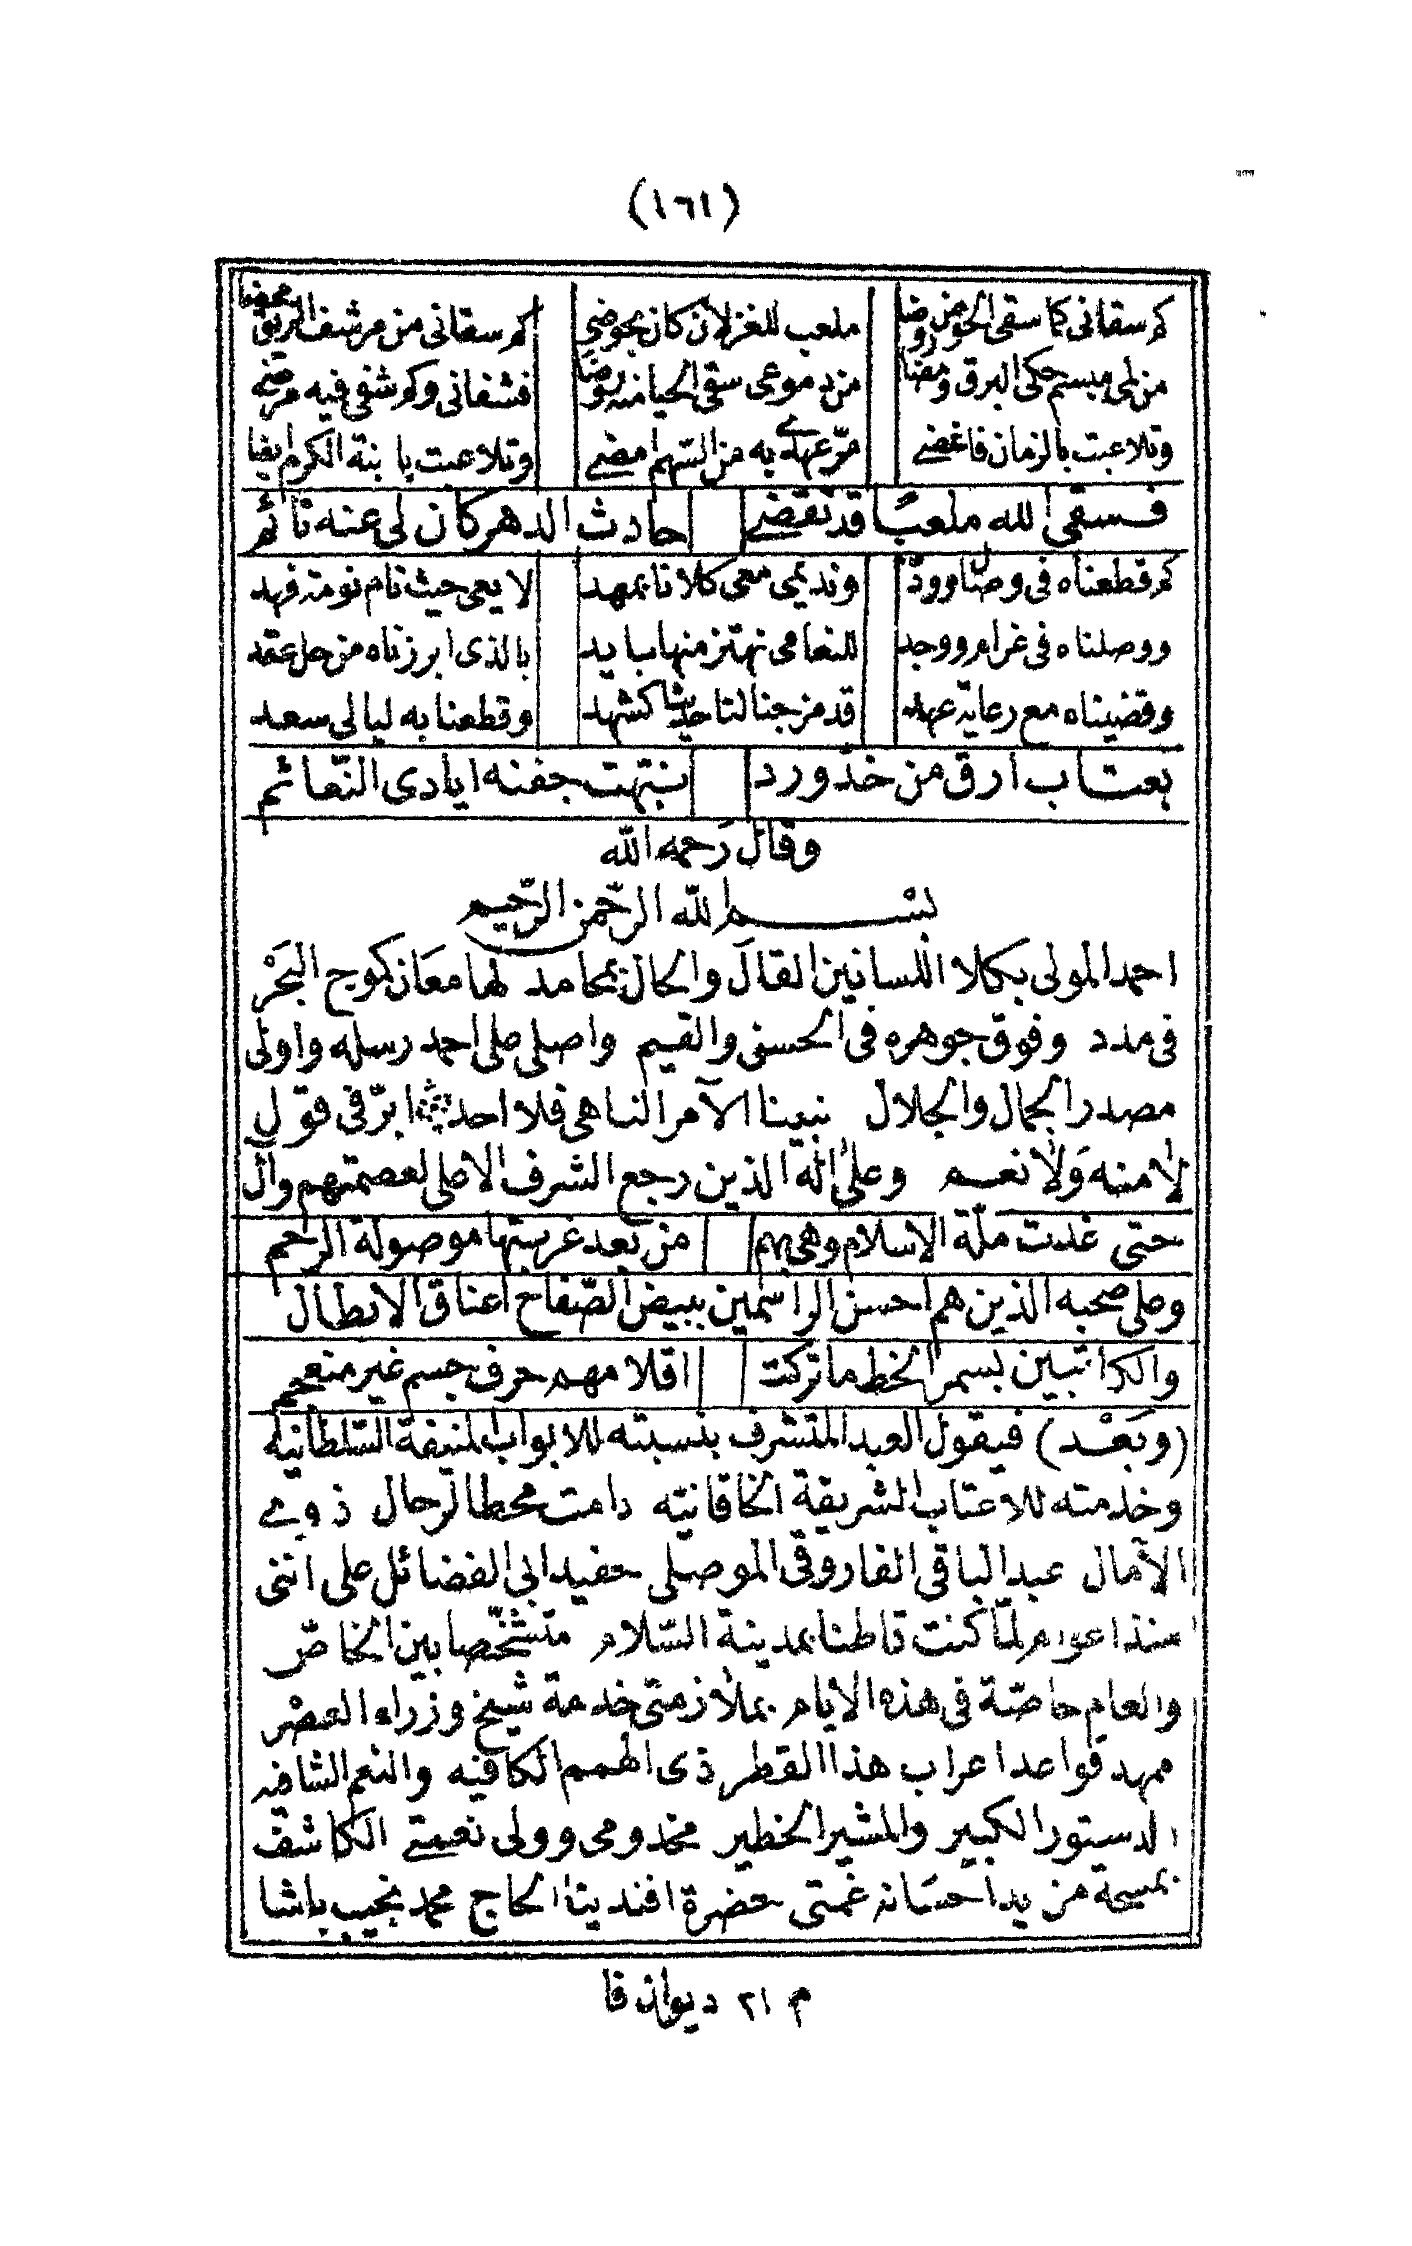 (١٦١)
كم سقاني كما سقى الحزن روضا ملعب للغزلان كان بحوضي كم سقاني من مرشف الريق محضا
من لمى مبسم حكى البرق ومضا من دموعي سقى الحيا منه روضا فشفاني وكم شفى فيه مرضى
وتلاعبت بالزمان فاغضى مرّ عهدي به من السهم امضى وتلاعبت بابنة الكرم ايضا
فسقى الله ملعبًا قد تقضى حادث الدهر كان لي عنه نائم
كم قطعناه في وصال وودّ ونديمي معي كلانا بمهد لا يعي حيث نام نومة فهد
ووصلناه في غرام ووجد للنعامى نهتز منها بايد بالذي ابرزناه من حل عقد
وقضيناه مع رعاية عهد قد مزجنا لنا حديثا كشهد وقطعنا به ليالي سعد
بعتاب ارق من خدّ ورد نبّهت جفنه ايادى النّعائم
وقال رحمه الله
بسم الله الرّحمن الرّحيم
احمد المولى بكلا اللسانين القال والحال بمحامد لها معان كموج البَحْر
في مدد وفوق جوهره في الحسن والقيم واصلي على احمد رسله واولى
مصدر الجمال والجلال نبينا الآمر الناهي فلا احد ابرّ في قول
لا منه ولا نعم وعلى آله الذين رجع الشرف الاعلى لعصمتهم وآل
حتى غدت ملّة الاسلام وهي بهم من بعد غربتها موصولة الرحم
وعلى صحبه الذين هم احسن الراسمين ببيض الصّفاح اعناق الابطال
والكاتبين بسمر الخط ما تركت اقلامهم حرف جسم غير منعجم
(وبَعْد) فيقول العبد المتشرف بنسبته للابواب المنيفة السّلطانيه
وخدمته للاعتاب الشريفة الخاقانيّه دامت محط الرحال ذوي
الآمال عبد الباقي الفاروقي الموصلي حفيد ابي الفضائل علي انني
منذ اعوام لمّا كنت قاطنا بمدينة السّلام متشخّصا بين الخاصّ
والعام خاصّة في هذه الايام بملازمتي خدمة شيخ وزراء العصْر
ممهد قواعد اعراب هذا القطر ذي الهمم الكافيه والنعم الشافيه
الدستور الكبير والمشير الخطير مخدومي وولى نعمتي الكاشف
بمسحة من يد احسانه غمتي حضرة افندينا الحاج محمد نجيب باشا
م ٢١ ديوان فا